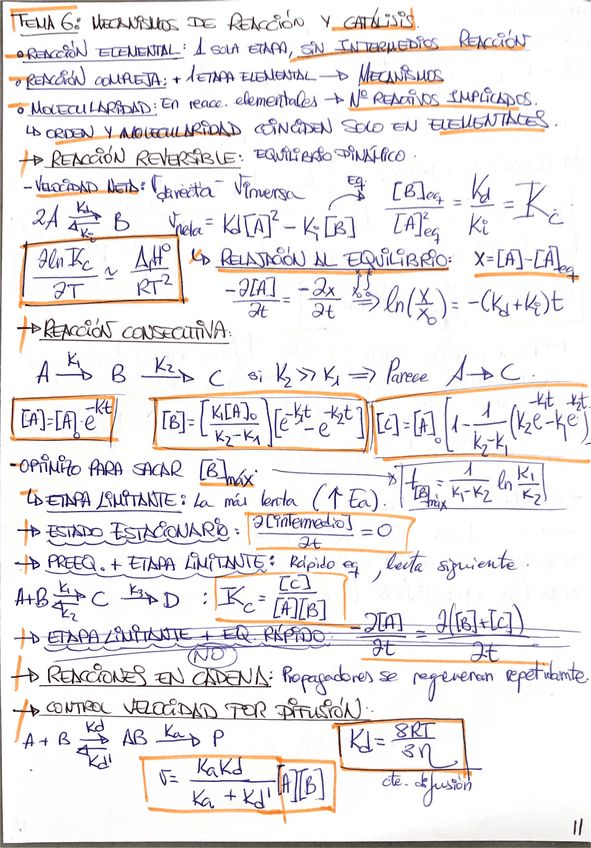 TEMA 6: MECANISMOS DE REACCIÓN Y CATÁLISIS.
• REACCIÓN ELEMENTAL: 1 SOLA ETAPA, SIN INTERMEDIOS REACCIÓN
• REACCIÓN COMPLEJA: + 1 ETAPA ELEMENTAL → MECANISMOS
• MOLECULARIDAD: En reacc. elementales → Nº REACTIVOS IMPLICADOS.
↳ ORDEN Y MOLECULARIDAD COINCIDEN SOLO EN ELEMENTALES.
→ REACCIÓN REVERSIBLE: EQUILIBRIO DINÁMICO.
- VELOCIDAD NETA: Vdirecta - Vinversa
2A ⇄ B (Kd, Ki) Vneta = Kd[A]² - Ki[B] Eq. [B]eq / [A]²eq = Kd / Ki = Kc
∂ln Kc / ∂T ≃ ΔrHº / RT² ↳ RELAJACIÓN AL EQUILIBRIO: X=[A]-[A]eq
-∂[A] / ∂t = -∂x / ∂t ⇒ ln(X/X₀) = -(Kd+Ki)t
→ REACCIÓN CONSECUTIVA:
A –K₁→ B –K₂→ C si K₂ >> K₁ ⇒ Parece A → C.
[A]=[A]₀·e^-Kt [B]=[K₁[A]₀ / K₂-K₁][e^-K₁t - e^-K₂t] [C]=[A]₀[1 - 1/K₂-K₁ (K₂e^-K₁t - K₁e^-K₂t)]
- OPTIMIZO PARA SACAR [B]máx. → t[B]máx = 1/K₁-K₂ ln K₁/K₂
↳ ETAPA LIMITANTE: La más lenta (↑ Ea).
→ ESTADO ESTACIONARIO: ∂[intermedio] / ∂t = 0
→ PREEQ. + ETAPA LIMITANTE: Rápido eq, lenta siguiente.
A+B ⇄ C –K₃→ D (K₁, K₂) : Kc = [C] / [A][B]
→ ETAPA LIMITANTE + EQ. RÁPIDO: -∂[A] / ∂t = ∂([B]+[C]) / ∂t
NO
→ REACCIONES EN CADENA: Propagadores se regeneran repetidamte.
→ CONTROL VELOCIDAD POR DIFUSIÓN:
A + B ⇄ AB –Ka→ P (Kd, Kd') Kd = 8RT / 3η
cte. difusión
V = KaKd / Ka + Kd' [A][B]
11